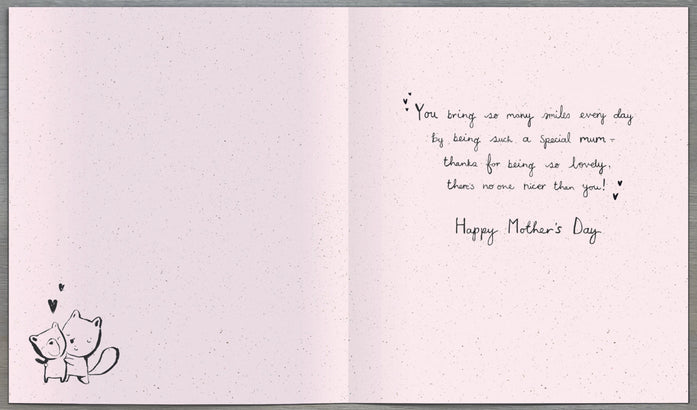 You bring so many smiles every day
by being such a special mum -
thanks for being so lovely,
there's no one nicer than you!
Happy Mother's Day